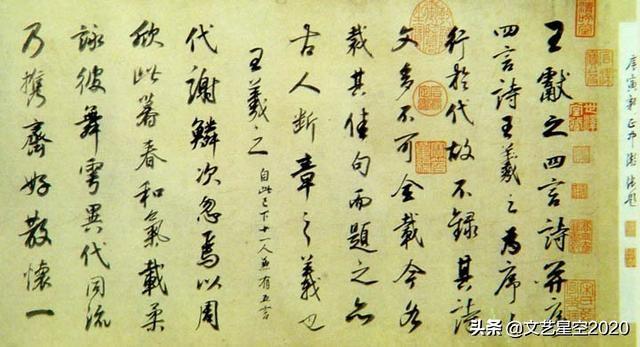 庚寅新正中澣御題
王獻之四言詩并序
四言詩王羲之為序
行於代故不錄其詩
文多不可全載今各
裁其佳句而題之亦
古人斷章之義也
王羲之 自此已下十一人並有五言
代謝鱗次忽焉以周
欣此暮春和氣載柔
詠彼舞雩異代同流
乃攜齊好散懷一
头条 @文艺星空2020